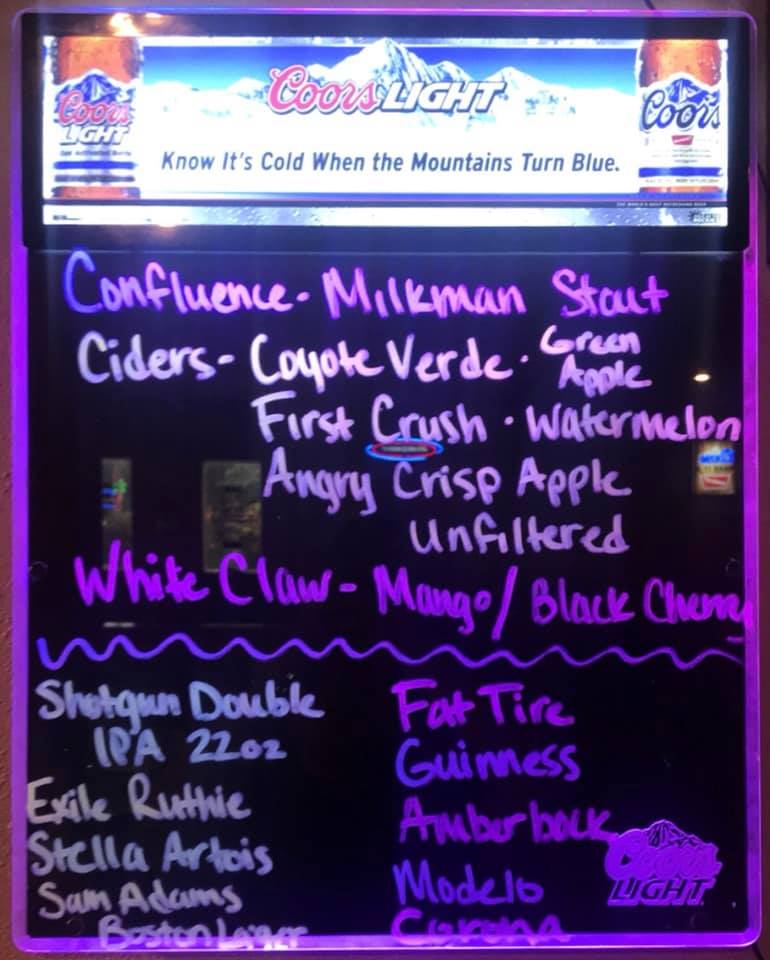 Coors LIGHT
Coors LIGHT
Coors
Know It's Cold When the Mountains Turn Blue.
Confluence - Milkman Stout
Ciders - Coyote Verde · Green Apple
First Crush · Watermelon
Angry Crisp Apple
Unfiltered
White Claw - Mango / Black Cherry
Shotgun Double
IPA 22oz
Exile Ruthie
Stella Artois
Sam Adams
Boston Lager
Fat Tire
Guinness
Amber bock
Modelo
Corona
Coors
LIGHT